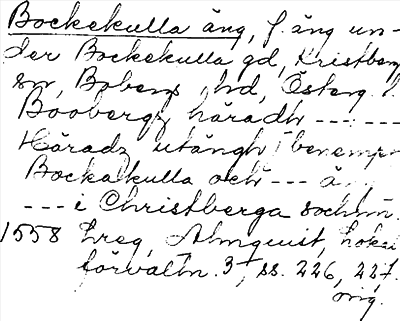 Bockekulla äng, f. äng un-
der Bockekulla gd, Kristberg
sn, Bobergs hd, Österg. l.
Boobergz häradh --- ---
Häradz utängh benempn
Bockakulla och --- äng
--- i Christberga sochnn.
1558 hreg, Almquist, Lokal
förvaltn. 3, ss. 226, 227.
orig.